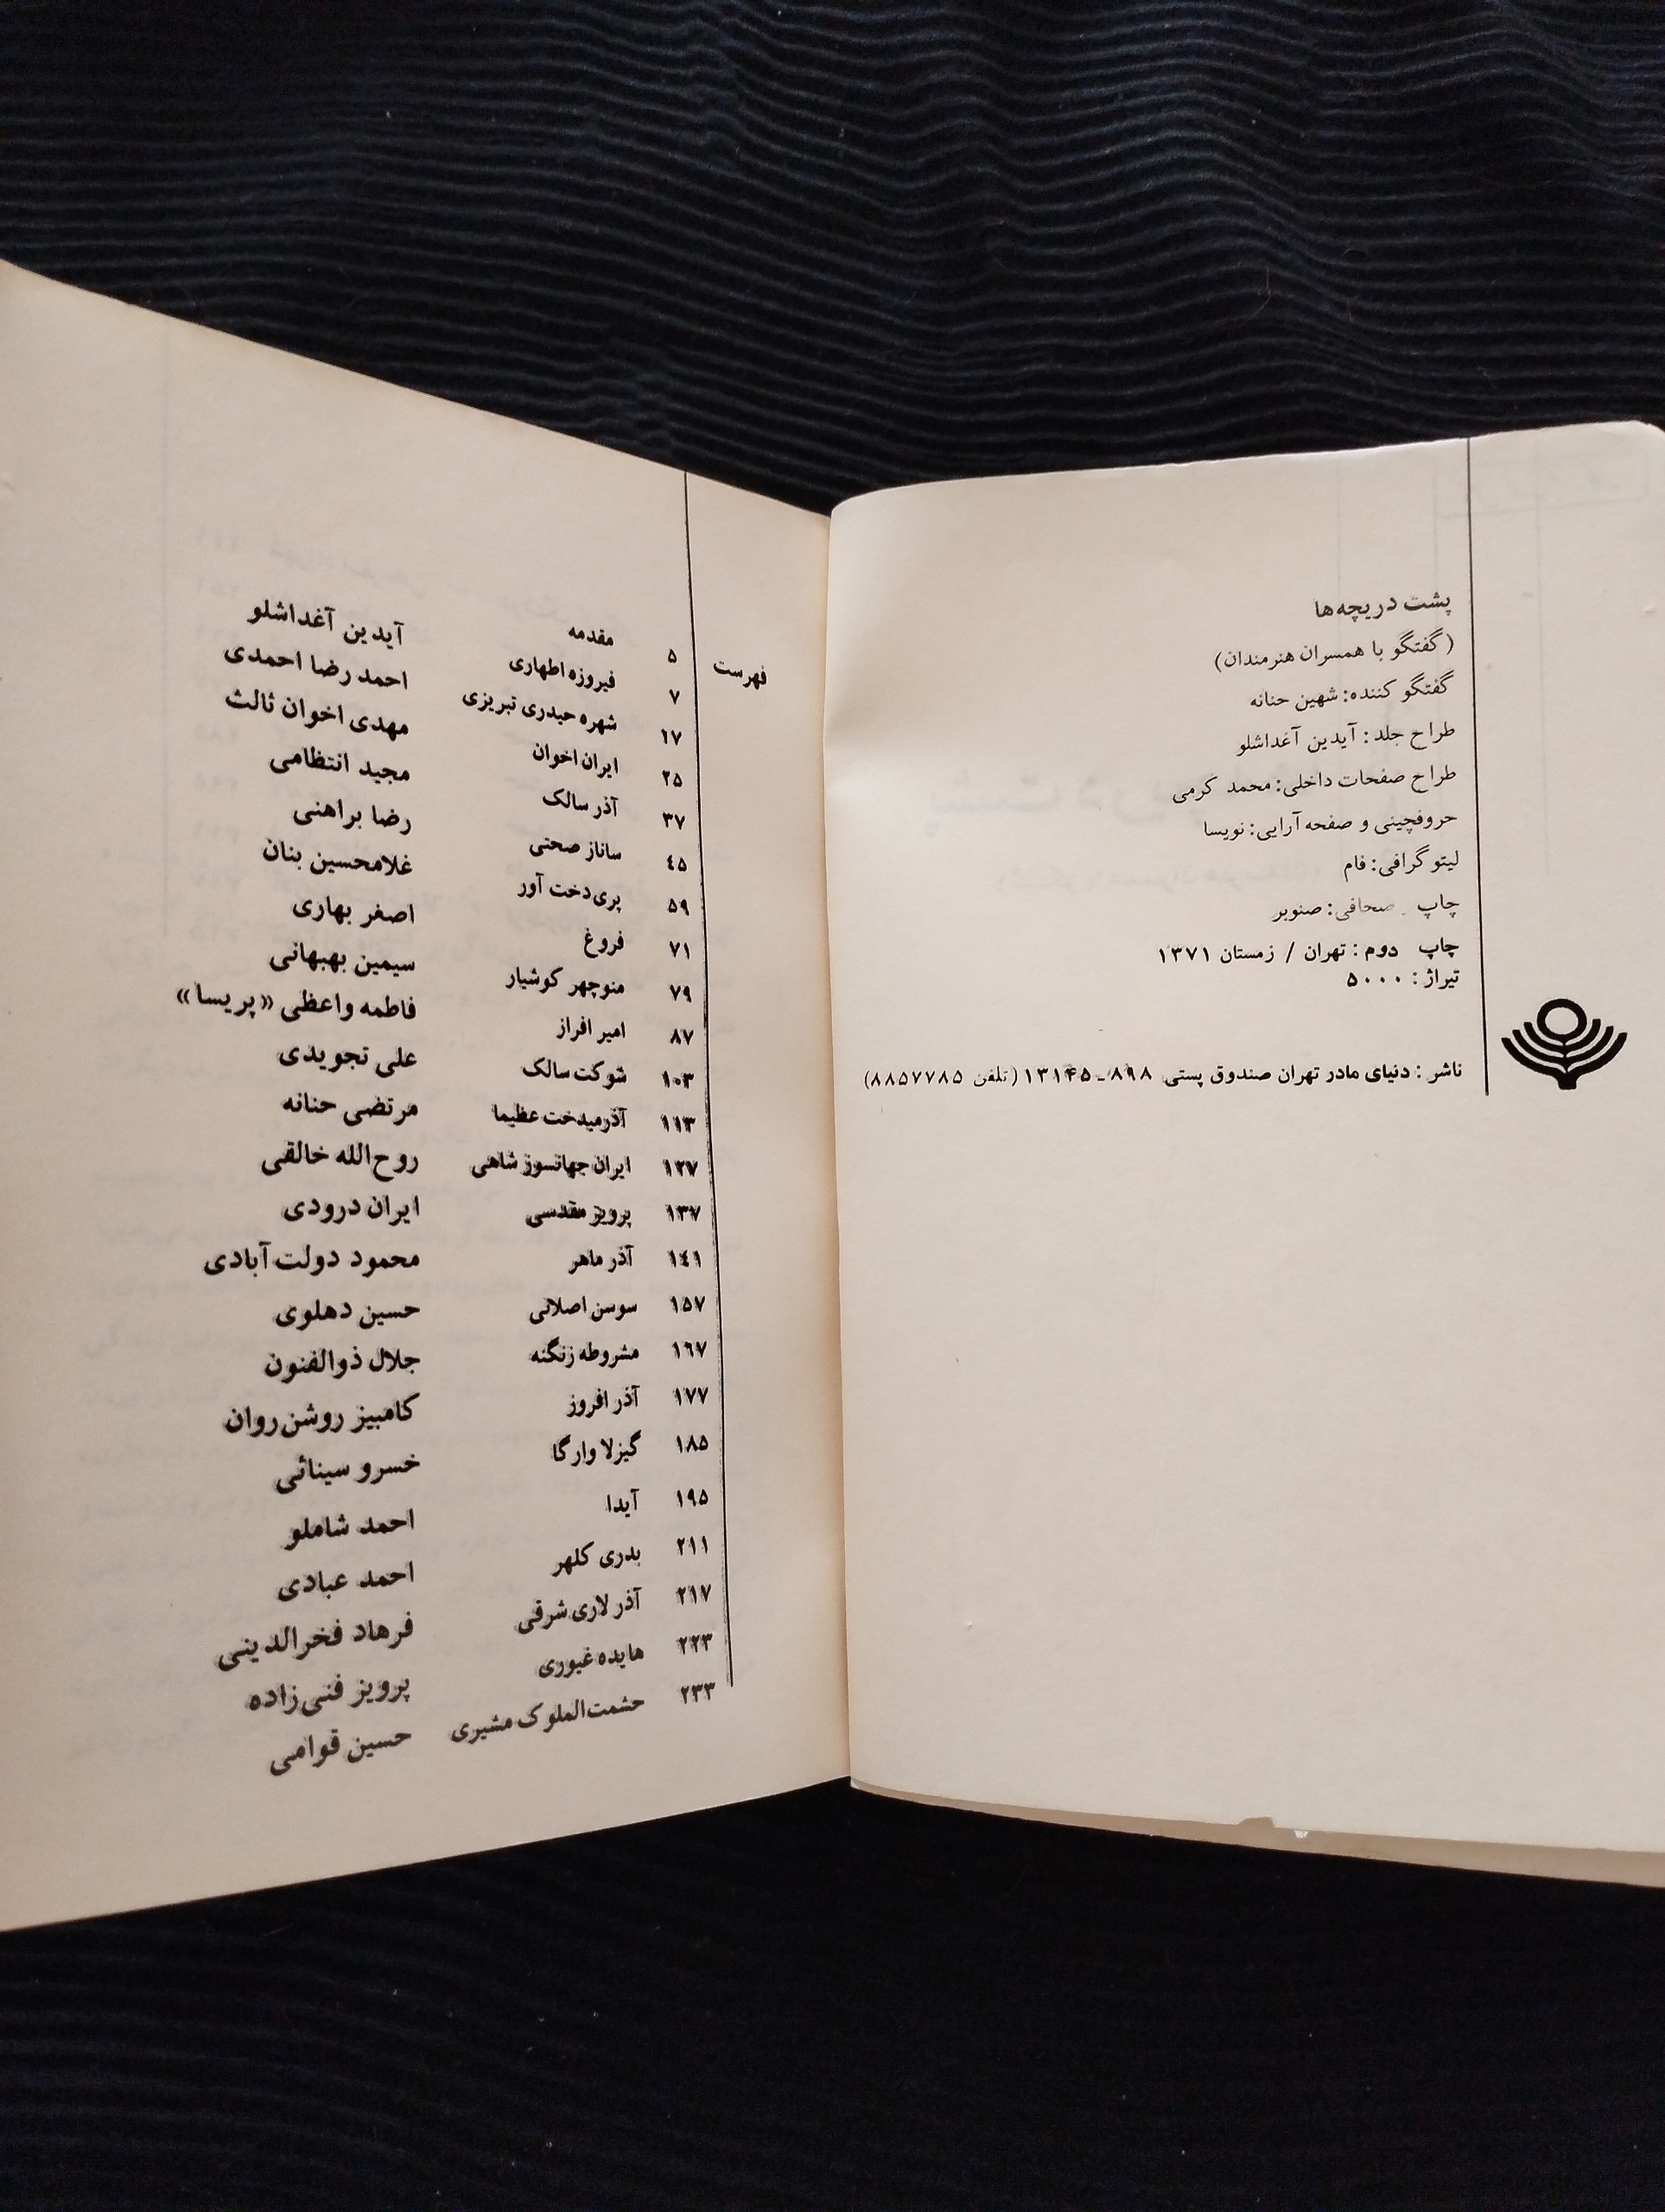 پشت دریچه‌ها
(گفتگو با همسران هنرمندان)
گفتگو کننده: شهین حنانه
طراح جلد: آیدین آغداشلو
طراح صفحات داخلی: محمد کرمی
حروفچینی و صفحه آرایی: نویسا
لیتوگرافی: فام
چاپ ـ صحافی: صنوبر
چاپ دوم: تهران / زمستان ۱۳۷۱
تیراژ: ۵۰۰۰
ناشر: دنیای مادر تهران صندوق پستی ۸۹۸ـ۱۳۱۴۵ (تلفن ۸۸۵۷۷۸۵)
فهرست
۵ مقدمه
۷ فیروزه اطهاری آیدین آغداشلو
۱۷ شهره حیدری تبریزی احمد رضا احمدی
۲۵ ایران اخوان مهدی اخوان ثالث
۳۷ آذر سالک مجید انتظامی
۴۵ ساناز صحتی رضا براهنی
۵۹ پری‌دخت آور غلامحسین بنان
۷۱ فروغ اصغر بهاری
۷۹ منوچهر کوشیار سیمین بهبهانی
۸۷ امیر افراز فاطمه واعظی «پریسا»
۱۰۳ شوکت سالک علی تجویدی
۱۱۳ آذرمیدخت عظیما مرتضی حنانه
۱۲۷ ایران جهانسوز شاهی روح‌الله خالقی
۱۳۷ پرویز مقدسی ایران درودی
۱۴۱ آذر ماهر محمود دولت آبادی
۱۵۷ سوسن اصلانی حسین دهلوی
۱۶۷ مشروطه زنگنه جلال ذوالفنون
۱۷۷ آذر افروز کامبیز روشن‌روان
۱۸۵ گیزلا وارگا خسرو سینائی
۱۹۵ آیدا احمد شاملو
۲۱۱ بدری کلهر احمد عبادی
۲۱۷ آذر لاری شرقی فرهاد فخرالدینی
۲۲۳ هایده غیوری پرویز فنی‌زاده
۲۳۳ حشمت‌الملوک مشیری حسین قوامی